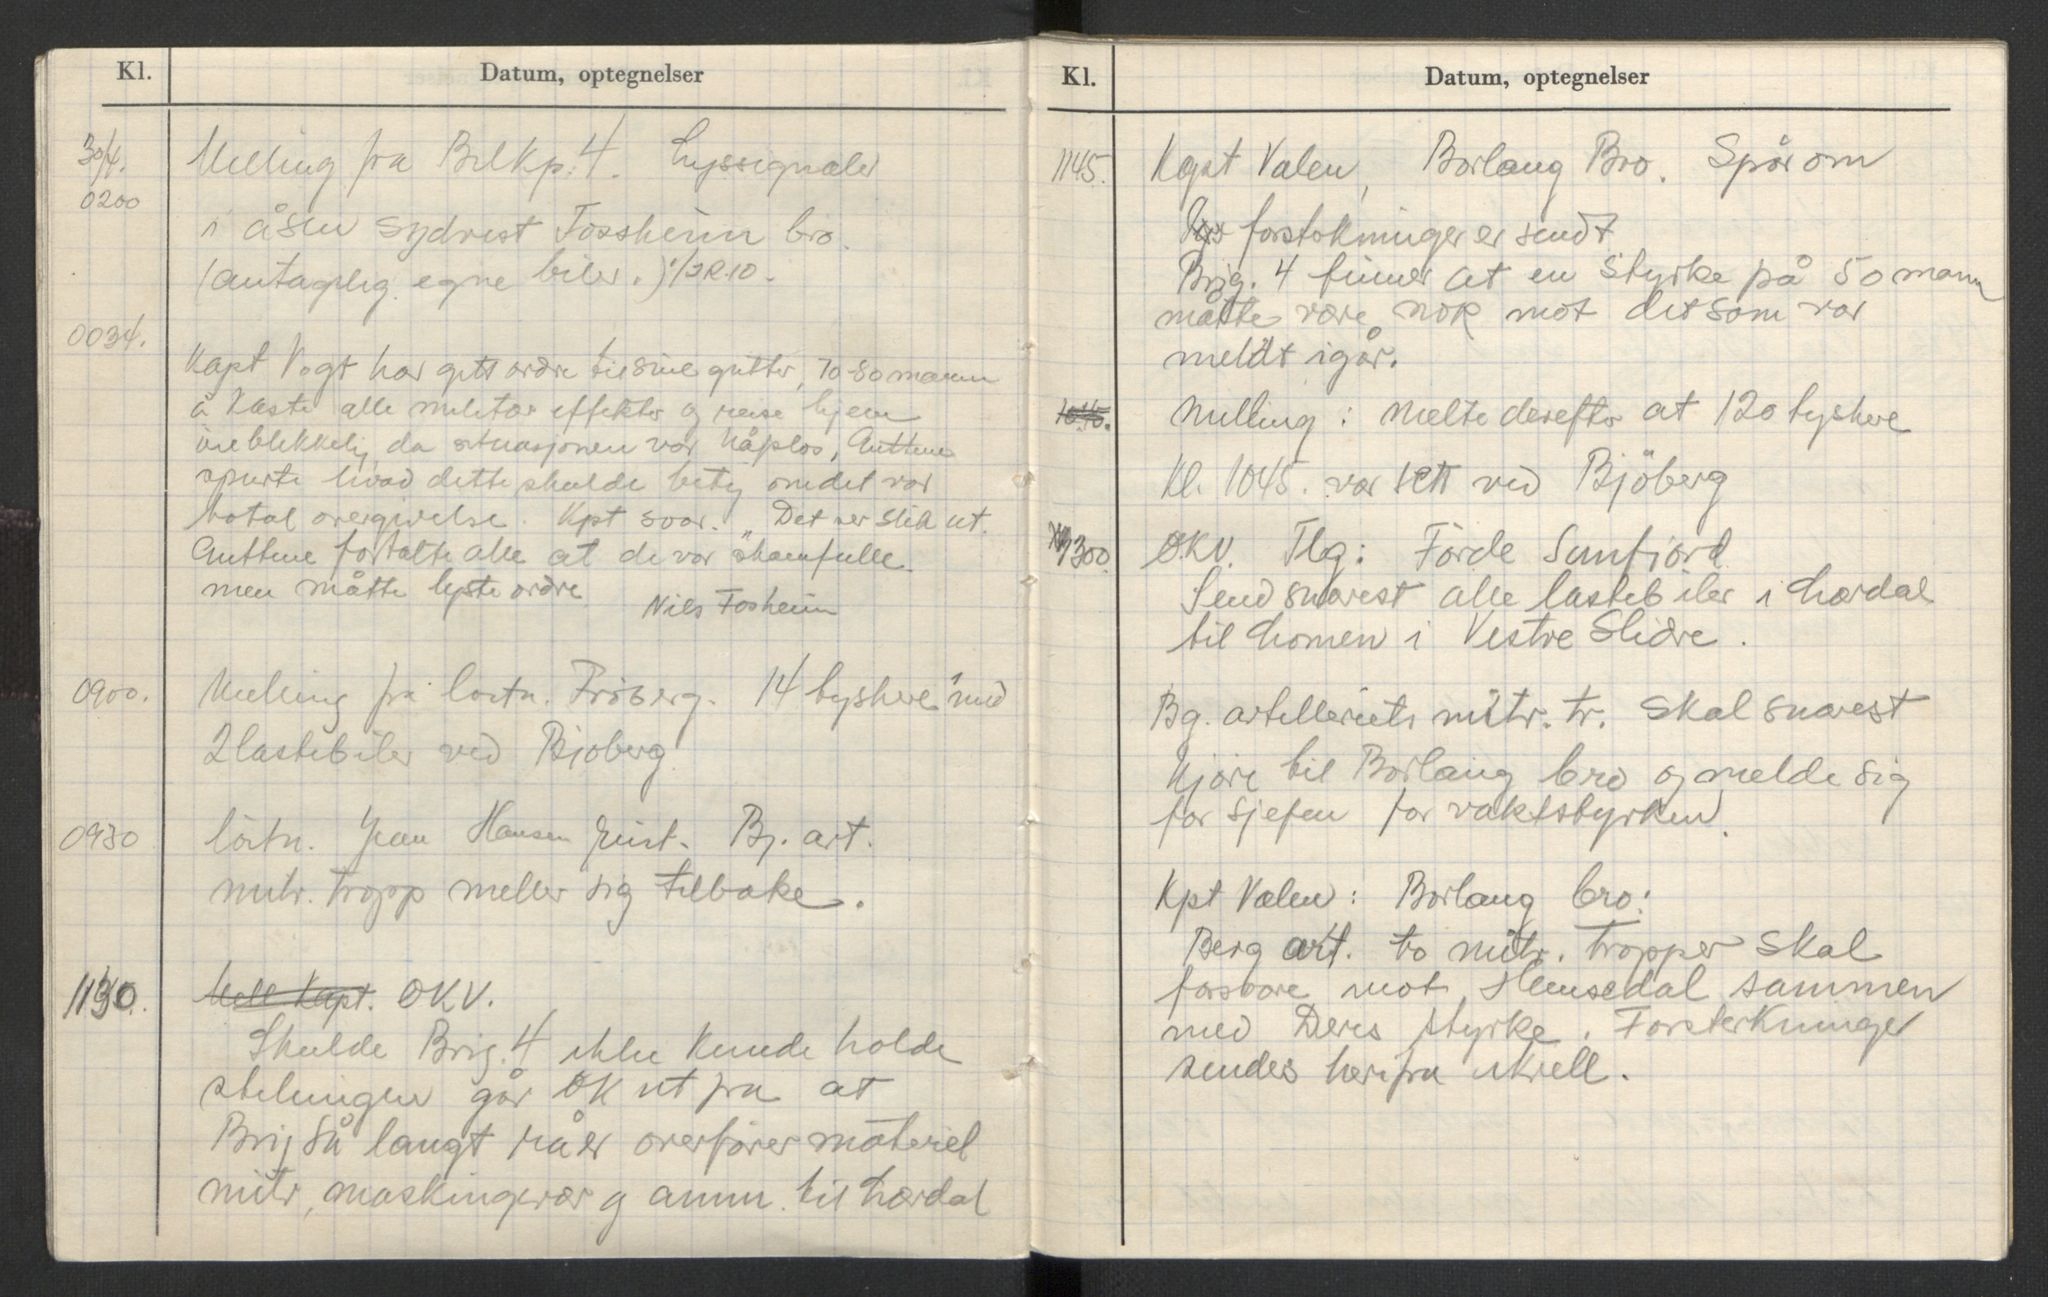 Kl. Datum, optegnelser
30/4. Melling fra Bilkp. 4. Lyssignaler
0200
i åsen sydvest Fossheim bro.
(antagelig egne biler.) I/IR.10.
0034.
Kapt Vogt har gitt ordre til sine gutter, 70-80 mann
å kaste alle militær effekter og reise hjem
öieblikkelig da situasjonen var håplos, Guttene
spurte hvad dette skulde bety om det var
total overgivelse. Kpt svar. „Det ser slik ut.
Guttene fortalte alle at de var skamfulle
men måtte lyste ordre
Nils Fosheim
0900. Melling fra löitn. Fröberg. 14 tyskere med
2 lastebiler ved Bjoberg
0930 löitn. Hansen Bg. art.
mitr. tropp meller sig tilbake.
1130. Mell Kapt. OKV.
Skulde Brig. 4 ikke kunde holde
stelingen går OK ut fra at
Brig så langt råd er overförer materiel
mitr, maskingevær og amm. til Lærdal
Kl. Datum, optegnelser
1145. Kapt Valen, Borlaug Bro. Spör om
forstokninger er sendt
Brig. 4 finner at en styrke på 50 mann
måtte være nok mot det som var
meldt igår.
Melling: Melte derefter at 120 tyskere
Kl. 1045. var sett ved Bjöberg
1300. OKV. Tlg: Förde Sunfjord
Send snarest alle lastebiler i Lærdal
til Lomen i Vestre Slidre.
Bg. artelleriets mitr. tr. skal snarest
kjöre til Borlaug bro og melde sig
for sjefen for vaktstyrken.
Kpt Valen: Borlaug bro:
Berg art. to mitr. tropper skal
forsvare mot Hemsedal sammen
med Deres styrke. Forsterkninger
sendes herifra ikvell.